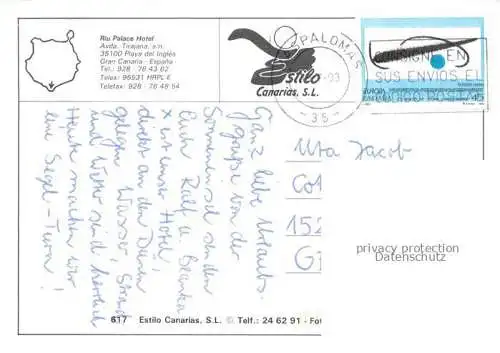 Riu Palace Hotel
Avda. Tirajana, s.n.
35100 Playa del Inglés
Gran Canaria - España
Tel.: 928 - 76 43 62
Telex: 96531 HRPL-E
Telefax: 928 - 76 48 54
Estilo
Canarias, S.L.
PALOMAS
-93
-35-
CONSIGNE EN
SUS ENVIOS EL
EUROPA
45
Ganz liebe Urlaubs-
grüße von der
Sonneninsel senden
Euch Ralf u. Bianka
x ist unser Hotel,
direkt an den Dünen
gelegen. Wasser, Strand
und Wetter sind herrlich
Heute machen wir
eine Segel-Turn!
Uta Jacob
152
privacy protection
Datenschutz
617 Estilo Canarias, S.L. © Telf.: 24 62 91 - Fot